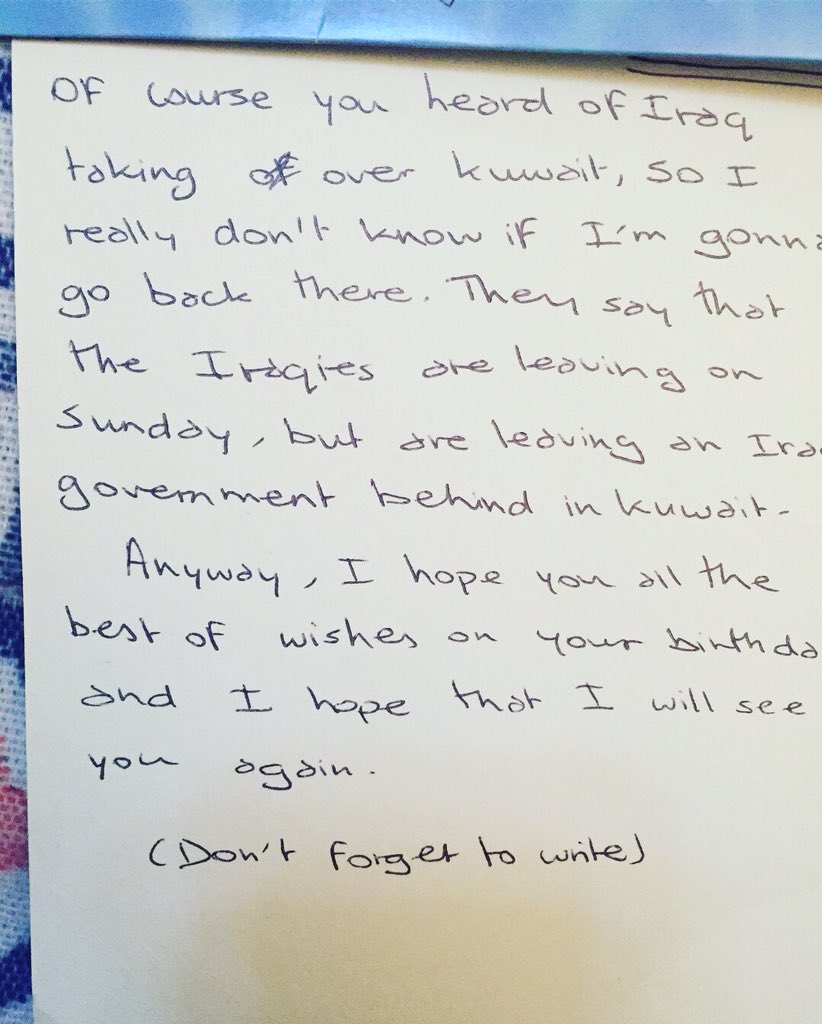 Of course you heard of Iraq
taking over Kuwait, so I
really don't know if I'm gonna
go back there. They say that
the Iraqies are leaving on
Sunday, but are leaving an Ira
government behind in Kuwait-
Anyway, I hope you all the
best of wishes on your birthda
and I hope that I will see
you again.
(Don't forget to write)